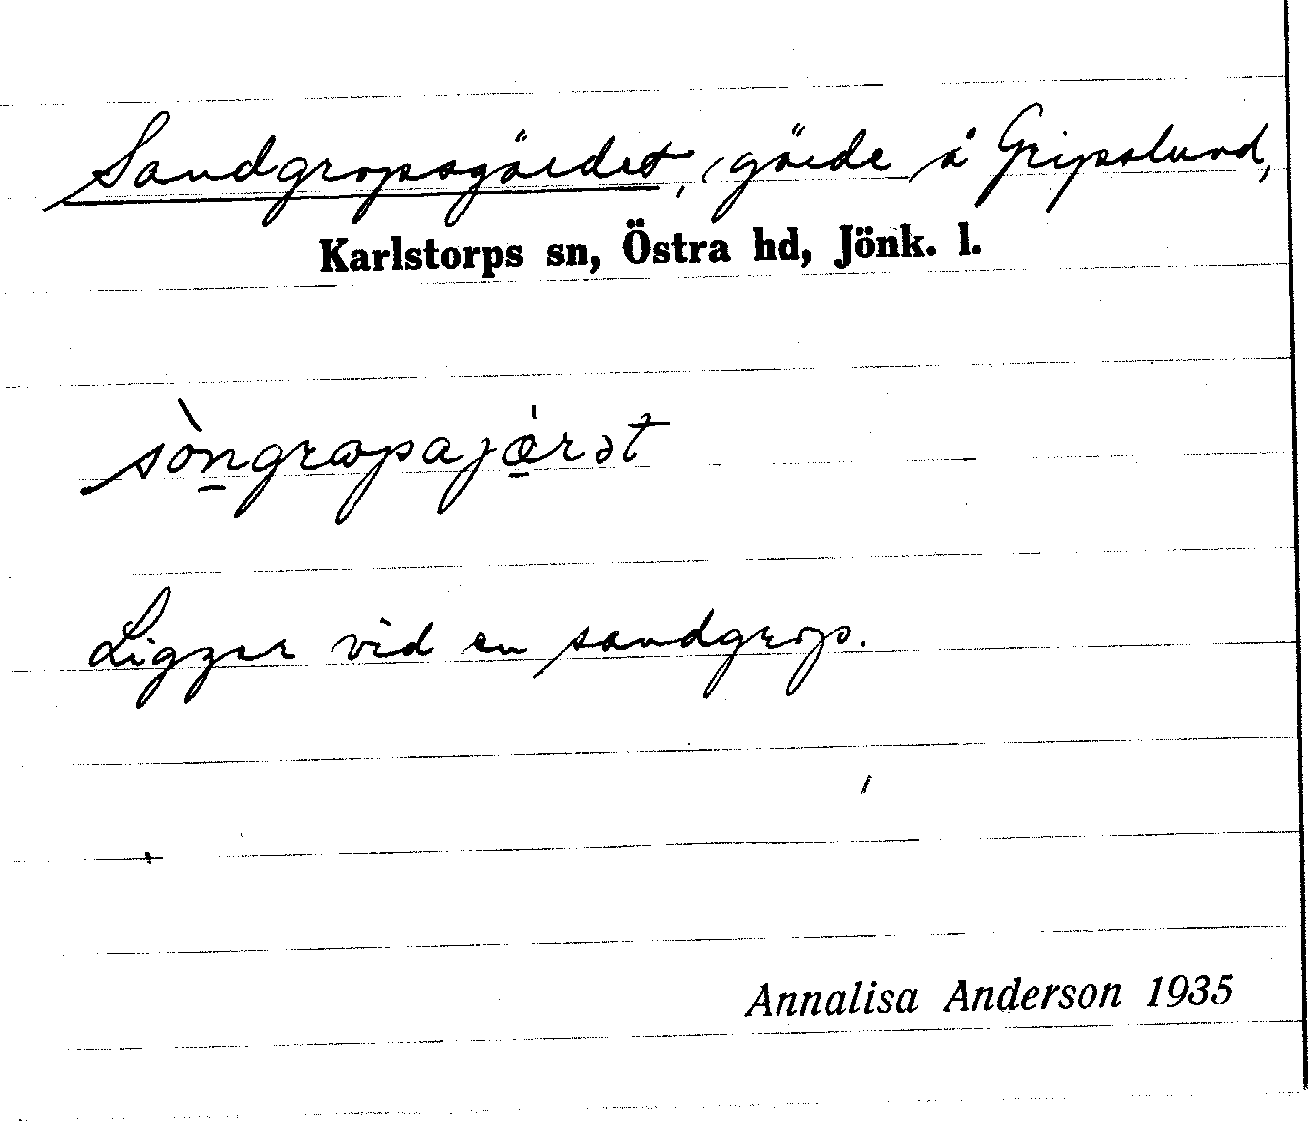 Sandgropagärdet, gärde å Gripslund,
Karlstorps sn, Östra hd, Jönk. l.
sòngræpajǽrət
Ligger vid en sandgrop.
Annalisa Anderson 1935